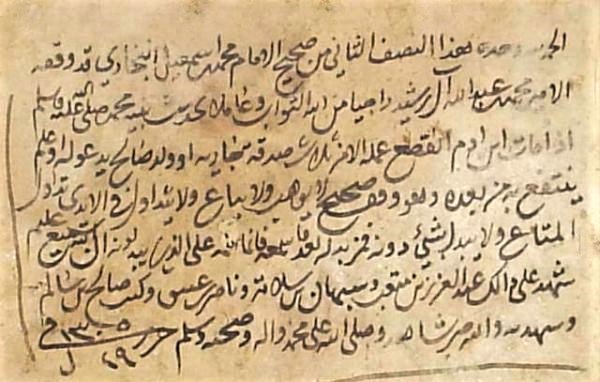 الحمد لله وحده هذا النصف الثاني من صحيح الامام محمد بن اسمعيل البخاري قد وقفه
الامير محمد بن عبد الله آل رشيد راجيا من الله الثواب وعاملا بحديث نبيه محمد صلى الله عليه وسلم
اذا مات ابن ادم انقطع عمله الا من ثلاث صدقة جارية او ولد صالح يدعو له او علم
ينتفع به من بعده وهو وقف صحيح لا يوهب ولا يباع ولا يتداول في الايدي تداول
المتاع ولا يبدل بشيء دونه فمن بدله بعد ما سمعه فانما اثمه على الذين يبدلونه ان الله سميع عليم
شهد على ذلك عبد العزيز بن وسبهان بن سلامة وناصر بن عتيق وكتب صالح بن سالم
وشهد به والله خير شاهد وصلى الله على محمد واله وصحبه وسلم حرر في
١٣٠٥
١٩ ل